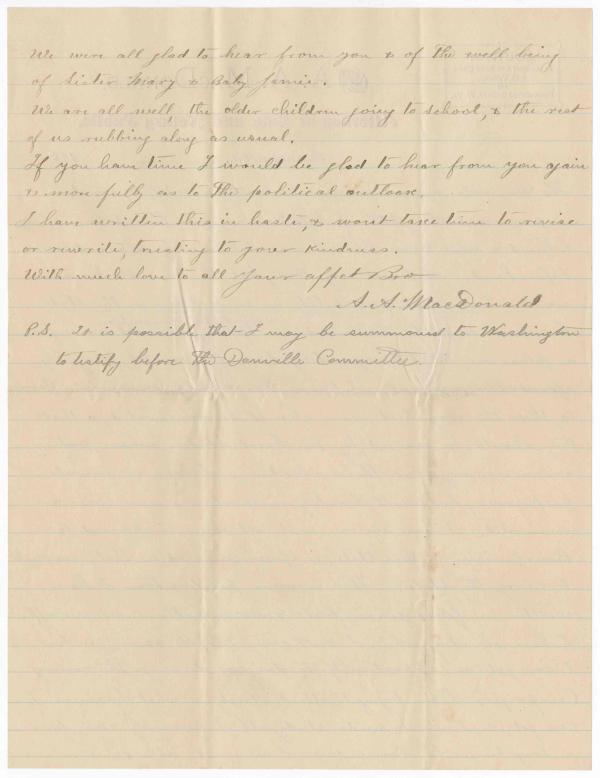 We were all glad to hear from you & of the well being
of Sister Mary & Baby Jamie.
We are all well, the older children going to school, & the rest
of us rubbing along as usual.
If you have time I would be glad to hear from you again
& more fully as to the political outlook.
I have written this in haste, & wont take time to revise
or rewrite, trusting to your kindness.
With much love to all Your affct Bro
A. A. MacDonald
P.S. It is possible that I may be summoned to Washington
to testify before the Danville Committee.